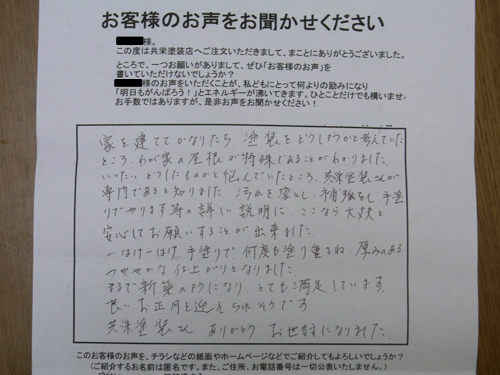 お客様のお声をお聞かせください
様。
この度は共栄塗装店へご注文いただきまして、まことにありがとうございました。
ところで、一つお願いがありまして、ぜひ「お客様のお声」を
書いていただけないでしょうか？
様のお声をいただくことが、私どもにとって何よりの励みになり
「明日もがんばろう！」とエネルギーが沸いてきます。ひとことだけでも構いませ
お手数ではありますが、是非お声をお聞かせください！
家を建ててかなりたち、塗装をどうしようかと考えていた
ところ、わが家の屋根が特殊であることがわかりました。
いったいどうしたものかと悩んでいたところ、共栄塗装さんが
専門であると知りました。汚れを落とし、補強をし、手塗
りでやります等の詳しい説明に、ここなら大丈夫と
安心してお願いすることが出来ました。
一はけ一はけ、手塗りで何度も塗り重ね、厚みのある
つややかな仕上がりとなりました。
まるで新築のようになり、とても満足しています。
良いお正月を迎えられそうです。
共栄塗装さん ありがとう お世話になりました。
このお客様のお声を、チラシなどの紙面やホームページなどでご紹介してもよろしいでしょうか？
（ご紹介するお名前は匿名です。また、ご住所、お電話番号は一切公表いたしません。）